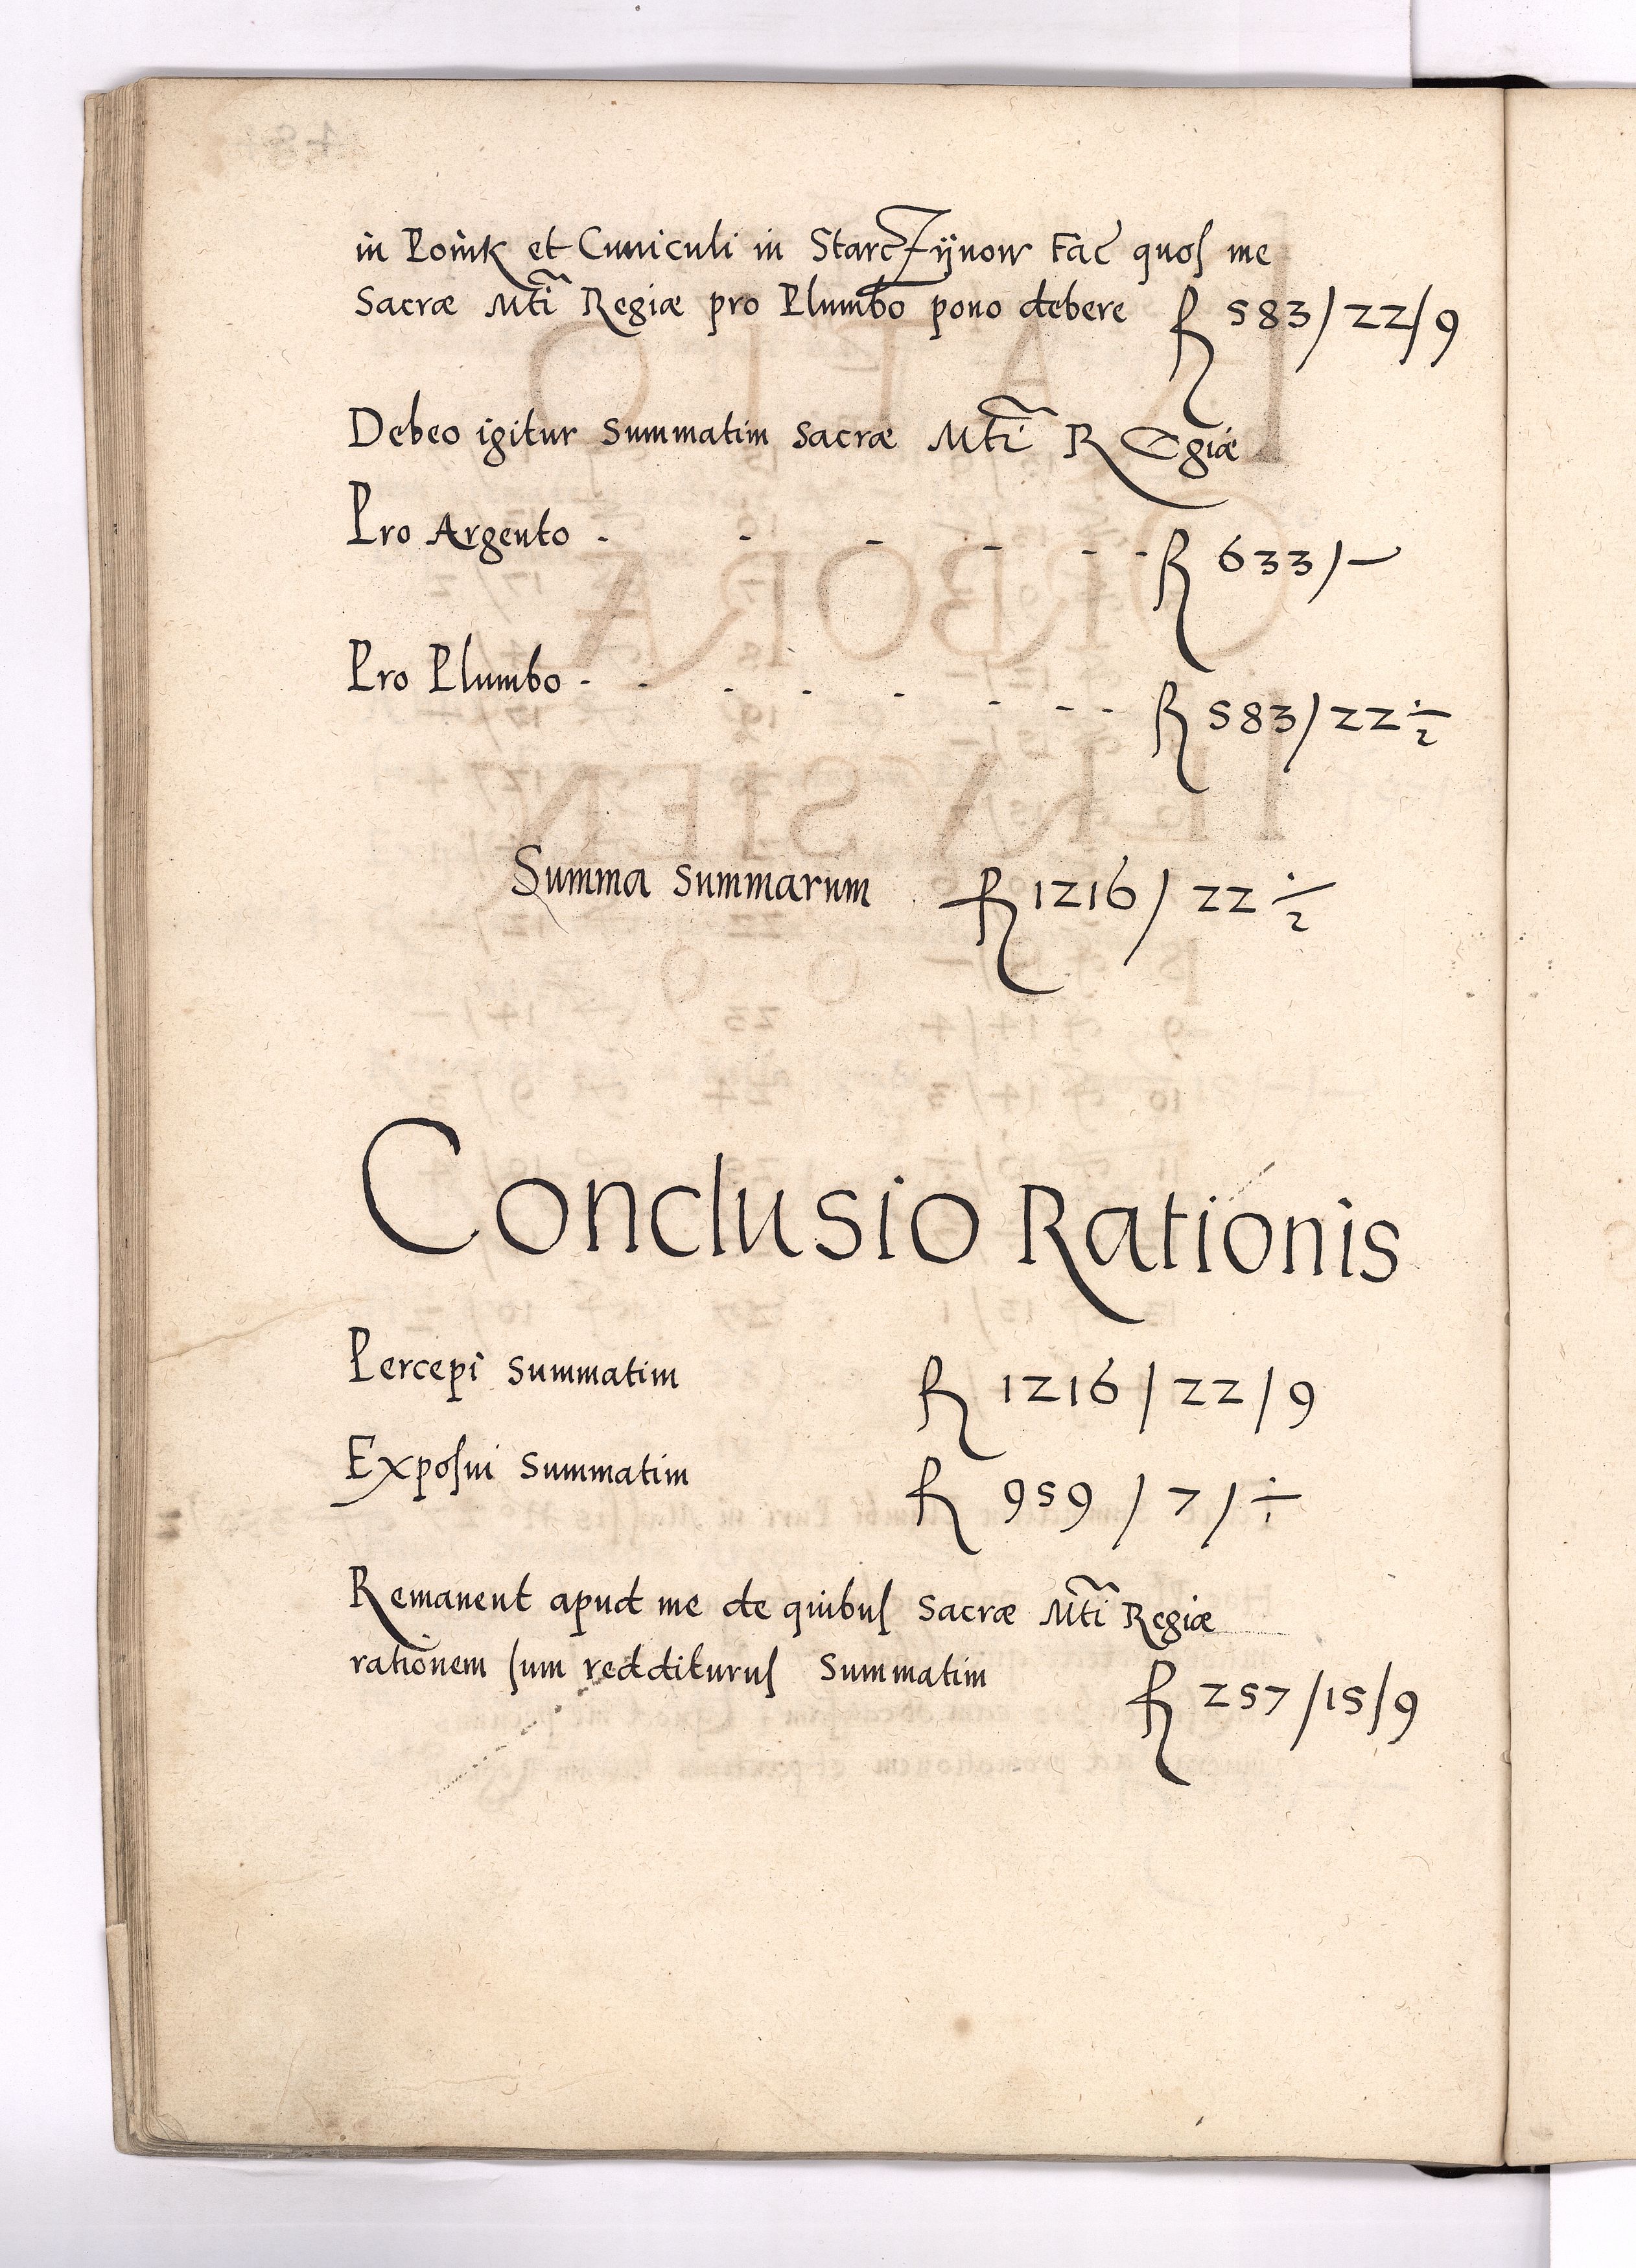 in Poink et Cuniculi in Starczÿnow Fac̄ quos me
Sacræ Mti Regiæ pro Plumbo pono debere R 583/22/9
Debeo igitur Summatim Sacræ Mti Regiæ
Pro Argento - - - - - - R 633/-
Pro Plumbo - - - - - - - - R 583/22 ½
Summa Summarum R 1216/22 ½
Conclusio Rationis
Percepi Summatim R 1216/22/9
Exposui Summatim R 959/7/÷
Remanent apud me de quibus Sacræ Mti Regiæ
rationem sum redditurus Summatim R 257/15/9